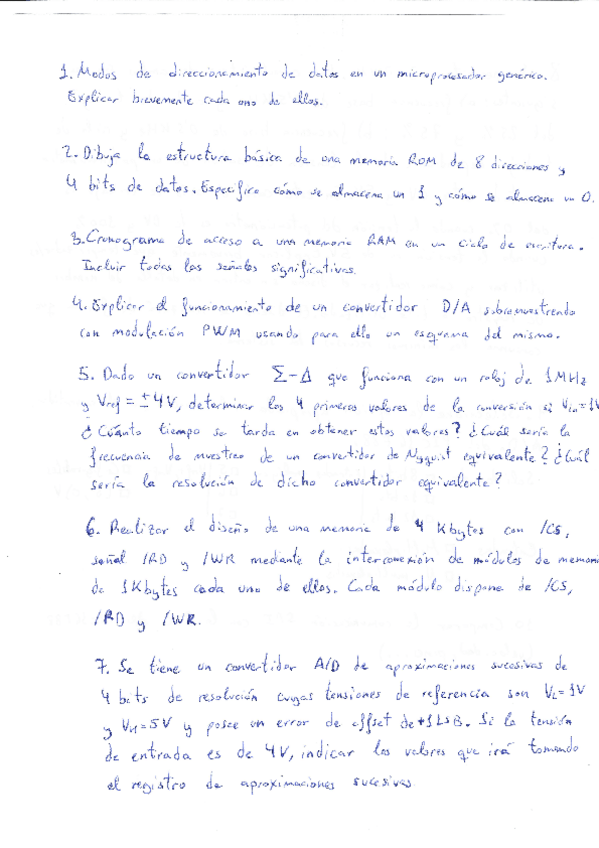 1. Modos de direccionamiento de datos en un microprocesador genérico.
Explicar brevemente cada uno de ellos.
2. Dibuja la estructura básica de una memoria ROM de 8 direcciones y
4 bits de datos. Especifica cómo se almacena un 1 y cómo se almacena un 0.
3. Cronograma de acceso a una memoria RAM en un ciclo de escritura.
Incluir todas las señales significativas.
4. Explicar el funcionamiento de un convertidor D/A sobremuestrendo
con modulación PWM usando para ello un esquema del mismo.
5. Dado un convertidor Σ-Δ que funciona con un reloj de 1MHz
y Vref = ±4V, determinar los 4 primeros valores de la conversión si Vin=1V
¿Cuánto tiempo se tarda en obtener estos valores? ¿Cuál sería la
frecuencia de muestreo de un convertidor de Nyquist equivalente? ¿Cuál
sería la resolución de dicho convertidor equivalente?
6. Realizar el diseño de una memoria de 4 Kbytes con /CS,
señal /RD y /WR mediante la interconexión de módulos de memori
de 1Kbytes cada uno de ellos. Cada módulo dispone de /CS,
/RD y /WR.
7. Se tiene un convertidor A/D de aproximaciones sucesivas de
4 bits de resolución cuyas tensiones de referencia son VL=1V
y VH=5V y posee un error de offset de +1LSB. Si la tensión
de entrada es de 4V, indicar los valores que irá tomando
el registro de aproximaciones sucesivas